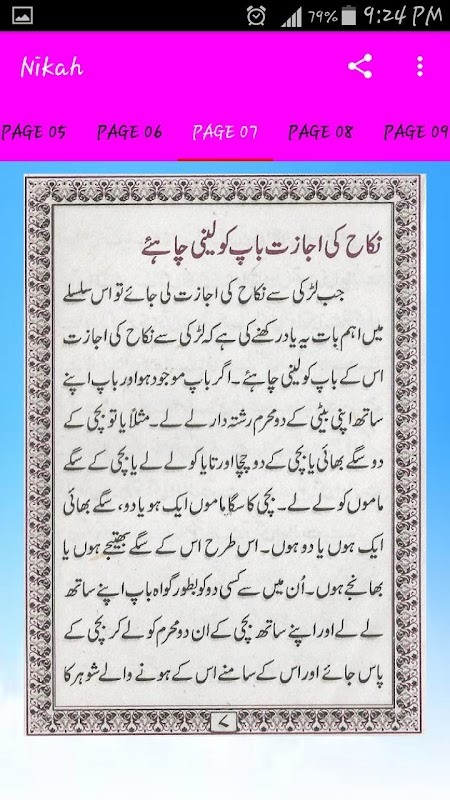 79% 9:24 PM
Nikah
PAGE 05 PAGE 06 PAGE 07 PAGE 08 PAGE 09
نکاح کی اجازت باپ کو لینی چاہئے
جب لڑکی سے نکاح کی اجازت لی جائے تو اس سلسلے
میں اہم بات یہ یاد رکھنے کی ہے کہ لڑکی سے نکاح کی اجازت
اس کے باپ کو لینی چاہئے۔ اگر باپ موجود ہو اور باپ اپنے
ساتھ اپنی بیٹی کے دو محرم رشتہ دار لے لے۔ مثلاً یا تو بچی کے
دو سگے بھائی یا بچی کے دو چچا اور تایا کو لے لے یا بچی کے سگے
ماموں کو لے لے۔ بچی کا سگا ماموں ایک ہو یا دو، سگے بھائی
ایک ہوں یا دو ہوں۔ اس طرح اس کے سگے بھتیجے ہوں یا
بھانجے ہوں۔ اُن میں سے کسی دو کو بطور گواہ باپ اپنے ساتھ
لے لے اور اپنے ساتھ بچی کے ان دو محرم کو لے کر بچی کے
پاس جائے اور اس کے سامنے اس کے ہونے والے شوہر کا
۷